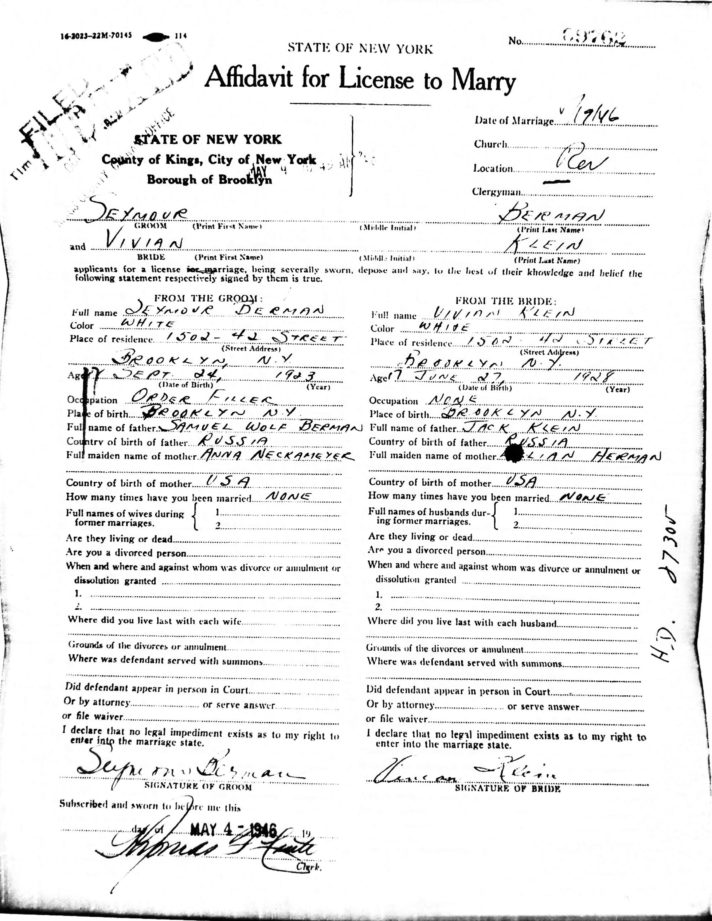 16-2023-22M-70145 114
No. 69762
STATE OF NEW YORK
Affidavit for License to Marry
FILED
STATE OF NEW YORK
County of Kings, City of New York
Borough of Brooklyn
MAY 4
Date of Marriage /9/46
Church
Location Rev
Clergyman
SEYMOUR BERMAN
GROOM (Print First Name) (Middle Initial) (Print Last Name)
and VIVIAN KLEIN
BRIDE (Print First Name) (Middle Initial) (Print Last Name)
applicants for a license for marriage, being severally sworn, depose and say, to the best of their knowledge and belief the
following statement respectively signed by them is true.
FROM THE GROOM:
Full name SEYMOUR BERMAN
Color WHITE
Place of residence 1502-42 STREET
(Street Address)
BROOKLYN, N.Y
Age SEPT. 24, 1923
(Date of Birth) (Year)
Occupation ORDER FILLER
Place of birth BROOKLYN N.Y
Full name of father SAMUEL WOLF BERMAN
Country of birth of father RUSSIA
Full maiden name of mother ANNA NECKAMEYER
Country of birth of mother USA
How many times have you been married NONE
Full names of wives during
former marriages.
1
2
Are they living or dead
Are you a divorced person
When and where and against whom was divorce or annulment or
dissolution granted
1.
2.
Where did you live last with each wife
Grounds of the divorces or annulment
Where was defendant served with summons
Did defendant appear in person in Court
Or by attorney or serve answer
or file waiver
I declare that no legal impediment exists as to my right to
enter into the marriage state.
Seymour Berman
SIGNATURE OF GROOM
Subscribed and sworn to before me this
day of MAY 4 - 1946 19
Thomas
Clerk.
FROM THE BRIDE:
Full name VIVIAN KLEIN
Color WHITE
Place of residence 1502 42 STREET
(Street Address)
BROOKLYN N.Y.
Age 17 JUNE 27, 1928
(Date of Birth) (Year)
Occupation NONE
Place of birth BROOKLYN N.Y
Full name of father JACK KLEIN
Country of birth of father RUSSIA
Full maiden name of mother LILLIAN HERMAN
Country of birth of mother USA
How many times have you been married NONE
Full names of husbands dur-
ing former marriages.
1
2
Are they living or dead
Are you a divorced person
When and where and against whom was divorce or annulment or
dissolution granted
1.
2.
Where did you live last with each husband
Grounds of the divorces or annulment
Where was defendant served with summons
Did defendant appear in person in Court
Or by attorney or serve answer
or file waiver
I declare that no legal impediment exists as to my right to
enter into the marriage state.
Vivian Klein
SIGNATURE OF BRIDE
H.D. 27305